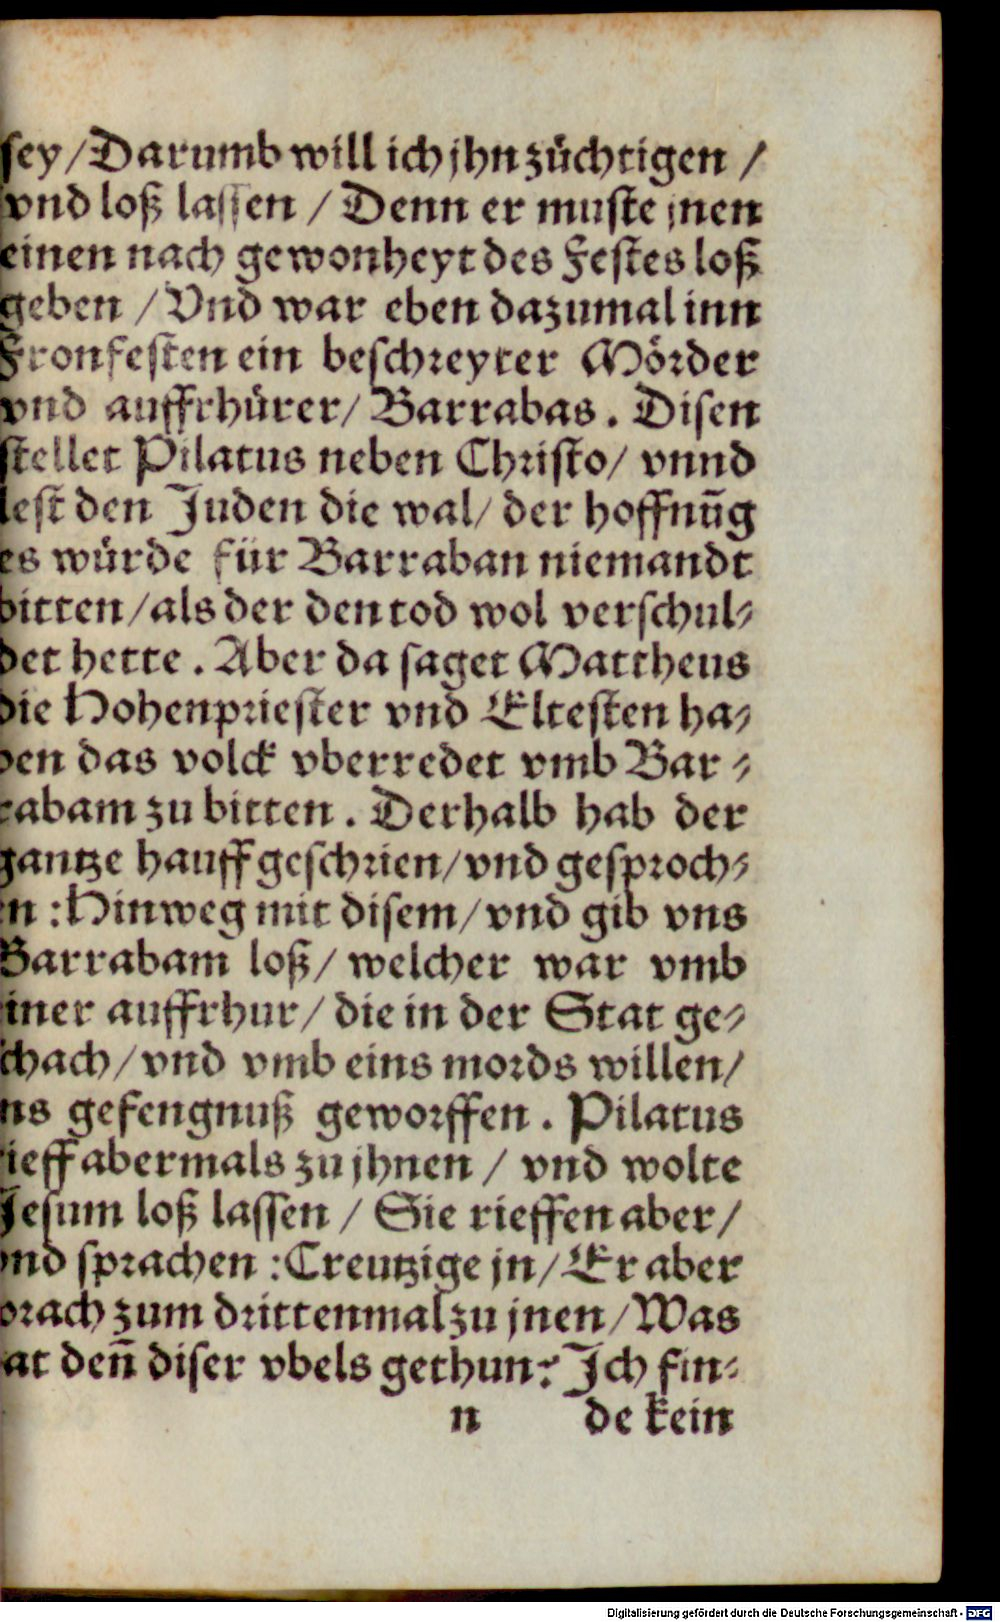 sey/Darumb will ich jhn züchtigen /
vnd loß lassen / Denn er muste jnen
einen nach gewonheyt des Festes loß
geben / Vnd war eben dazumal inn
Fronfesten ein beschreyter Mörder
vnd auffrhürer/ Barrabas. Disen
stellet Pilatus neben Christo/ vnnd
lest den Juden die wal/ der hoffnūg
es würde für Barraban niemandt
bitten/als der den tod wol verschul⸗
det hette. Aber da saget Mattheus
die Hohenpriester vnd Eltesten ha⸗
ben das volck vberredet vmb Bar⸗
rabam zu bitten. Derhalb hab der
gantze hauff geschrien/vnd gesproch⸗
en :Hinweg mit disem/vnd gib vns
Barrabam loß/ welcher war vmb
iner auffrhur/ die in der Stat ge⸗
chach/vnd vmb eins mords willen/
ns gefengnuß geworffen. Pilatus
rieff abermals zu jhnen / vnd wolte
Jesum loß lassen / Sie rieffen aber/
vnd sprachen :Creutzige jn/Er aber
prach zum drittenmal zu jnen/Was
at deñ diser vbels gethun? Ich fin⸗
n de kein
Digitalisierung gefördert durch die Deutsche Forschungsgemeinschaft - DFG